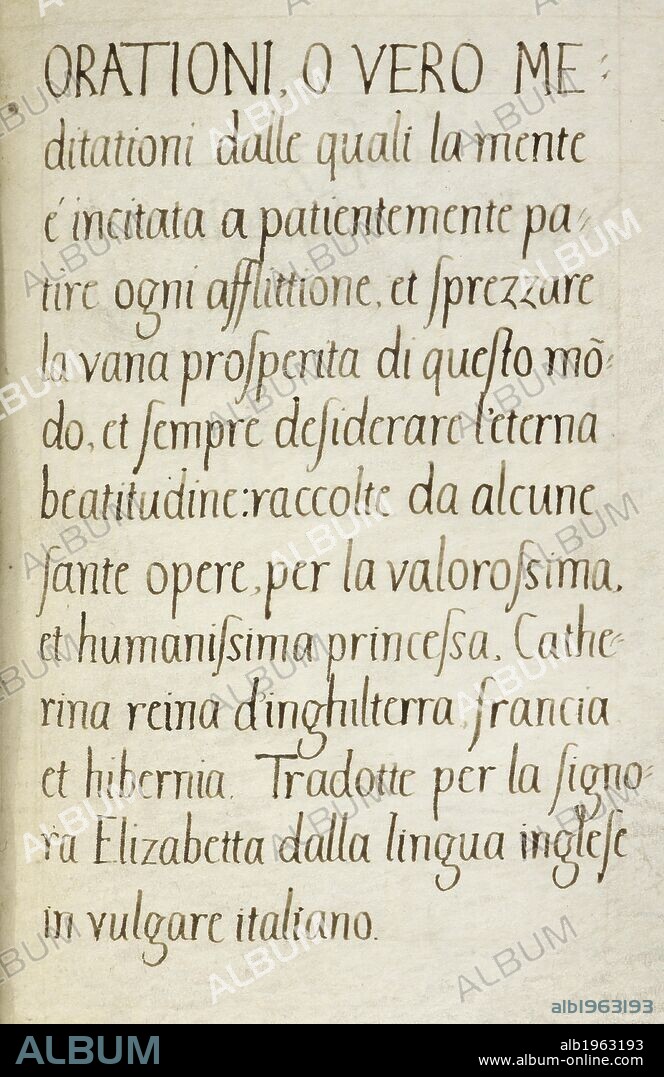 ORATIONI, O VERO ME⸗
ditationi dalle quali la mente
é incitata a patientemente pa⸗
tire ogni afflittione, et ſprezzare
la vana proſperita di queſto mõ⸗
do, et ſempre deſiderare l'eterna
beatitudine: raccolte da alcune
ſante opere, per la valoroſsima,
et humaniſsima princeſsa, Cathe⸗
rina reina d'inghilterra, francia
et hibernia. Tradotte per la ſigno⸗
ra Elizabetta dalla lingua ingleſe
in vulgare italiano.
alb1963193
ALBUM
alb1963193
www.album-online.com